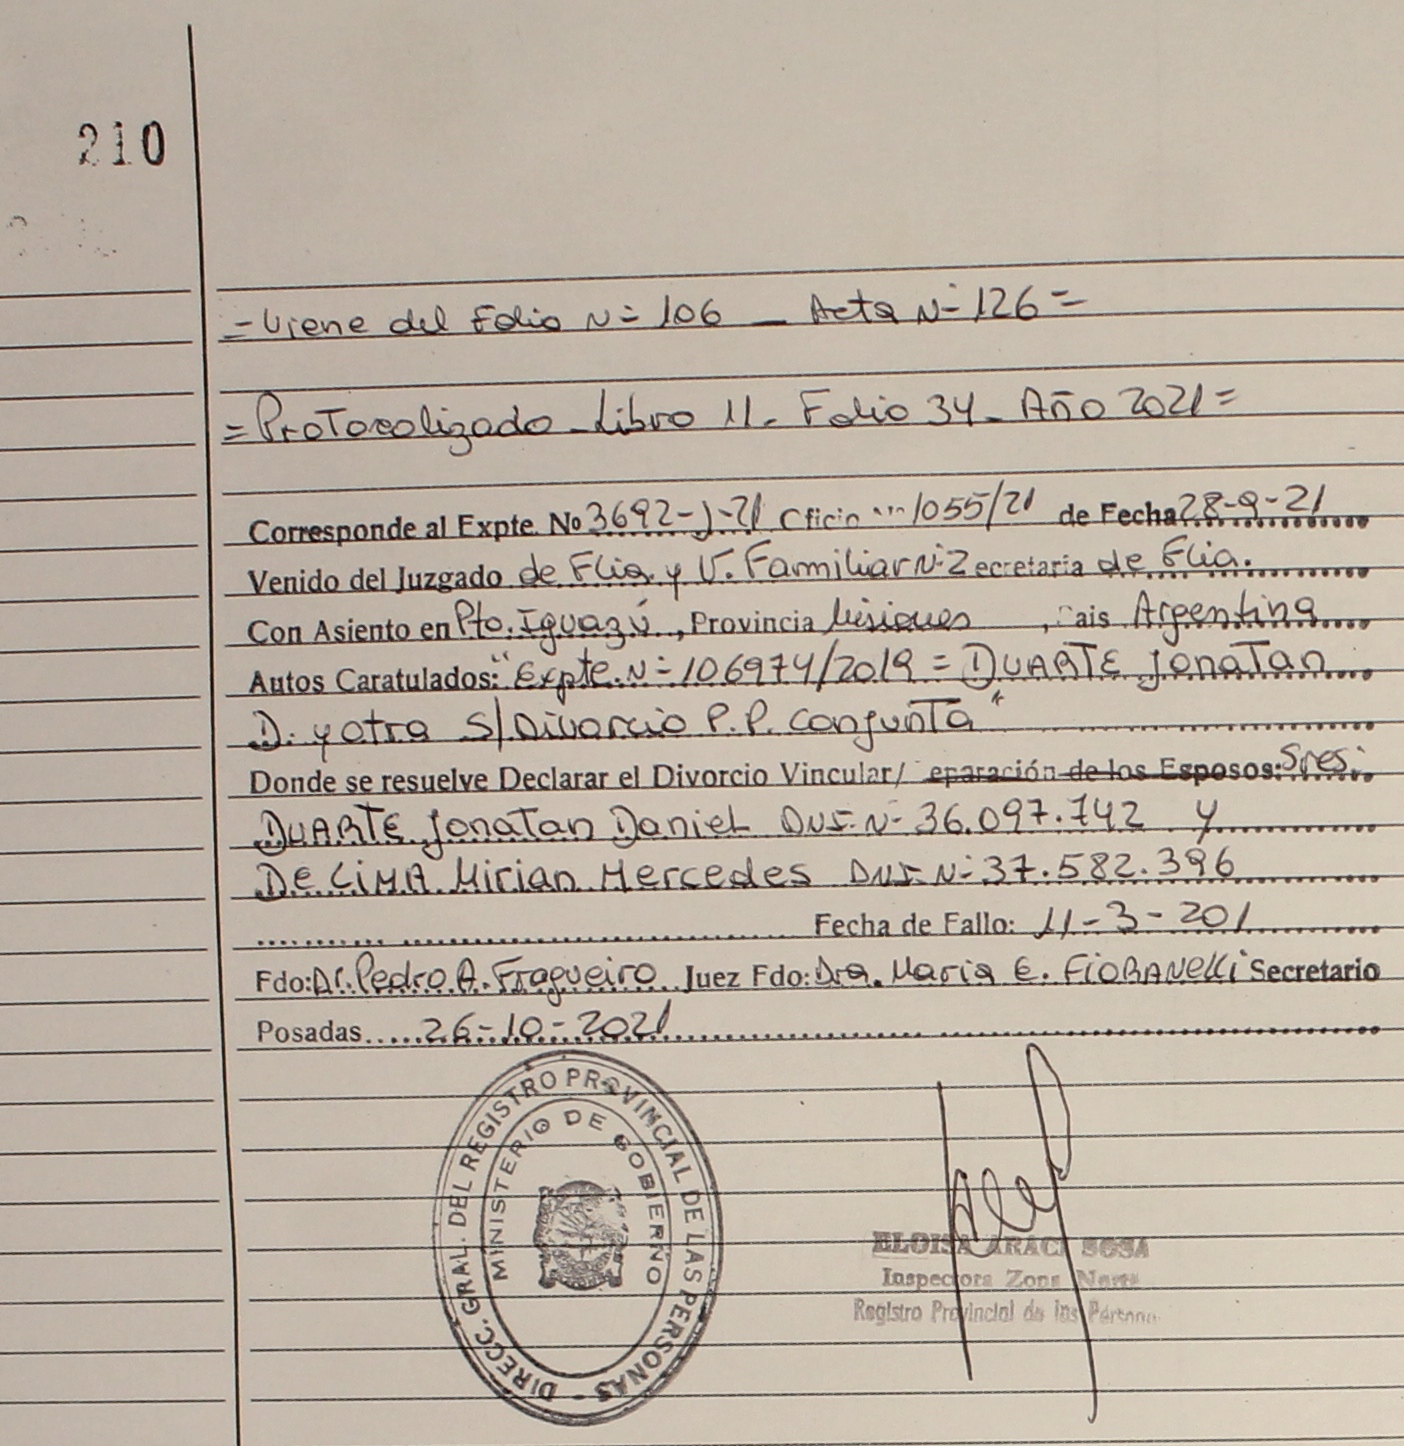 210
= Viene del Folio N= 106 — Acta N= 126 =
= Protocolizado - Libro 11. Folio 34 - Año 2021 =
Corresponde al Expte. No 3692-J-21 Oficio 1055/21 de Fecha 28-9-21
Venido del Juzgado de Flia. y V. Familiar N= 2 ecretaria de Flia.
Con Asiento en Pto. Iguazú, Provincia Misiones, ais Argentina
Autos Caratulados: "Expte. N= 106974/2019 = DUARTE Jonatan
D. y otra S/Divorcio P.P. conjunta"
Donde se resuelve Declarar el Divorcio Vincular/ eparación de los Esposos: Sres.
DUARTE Jonatan Daniel DNI. N= 36.097.742 y
De LIMA Mirian Mercedes DNI. N= 37.582.396
Fecha de Fallo: 11-3-201
Fdo: Dr. Pedro A. Fragueiro Juez Fdo: Dra. Maria E. FIORANELLI Secretario
Posadas 26-10-2021
DIRECC. GRAL. DEL REGISTRO PROVINCIAL DE LAS PERSONAS -
MINISTERIO DE GOBIERNO
ELOISA ARACI SOSA
Inspectora Zona Norte
Registro Provincial de las Persona